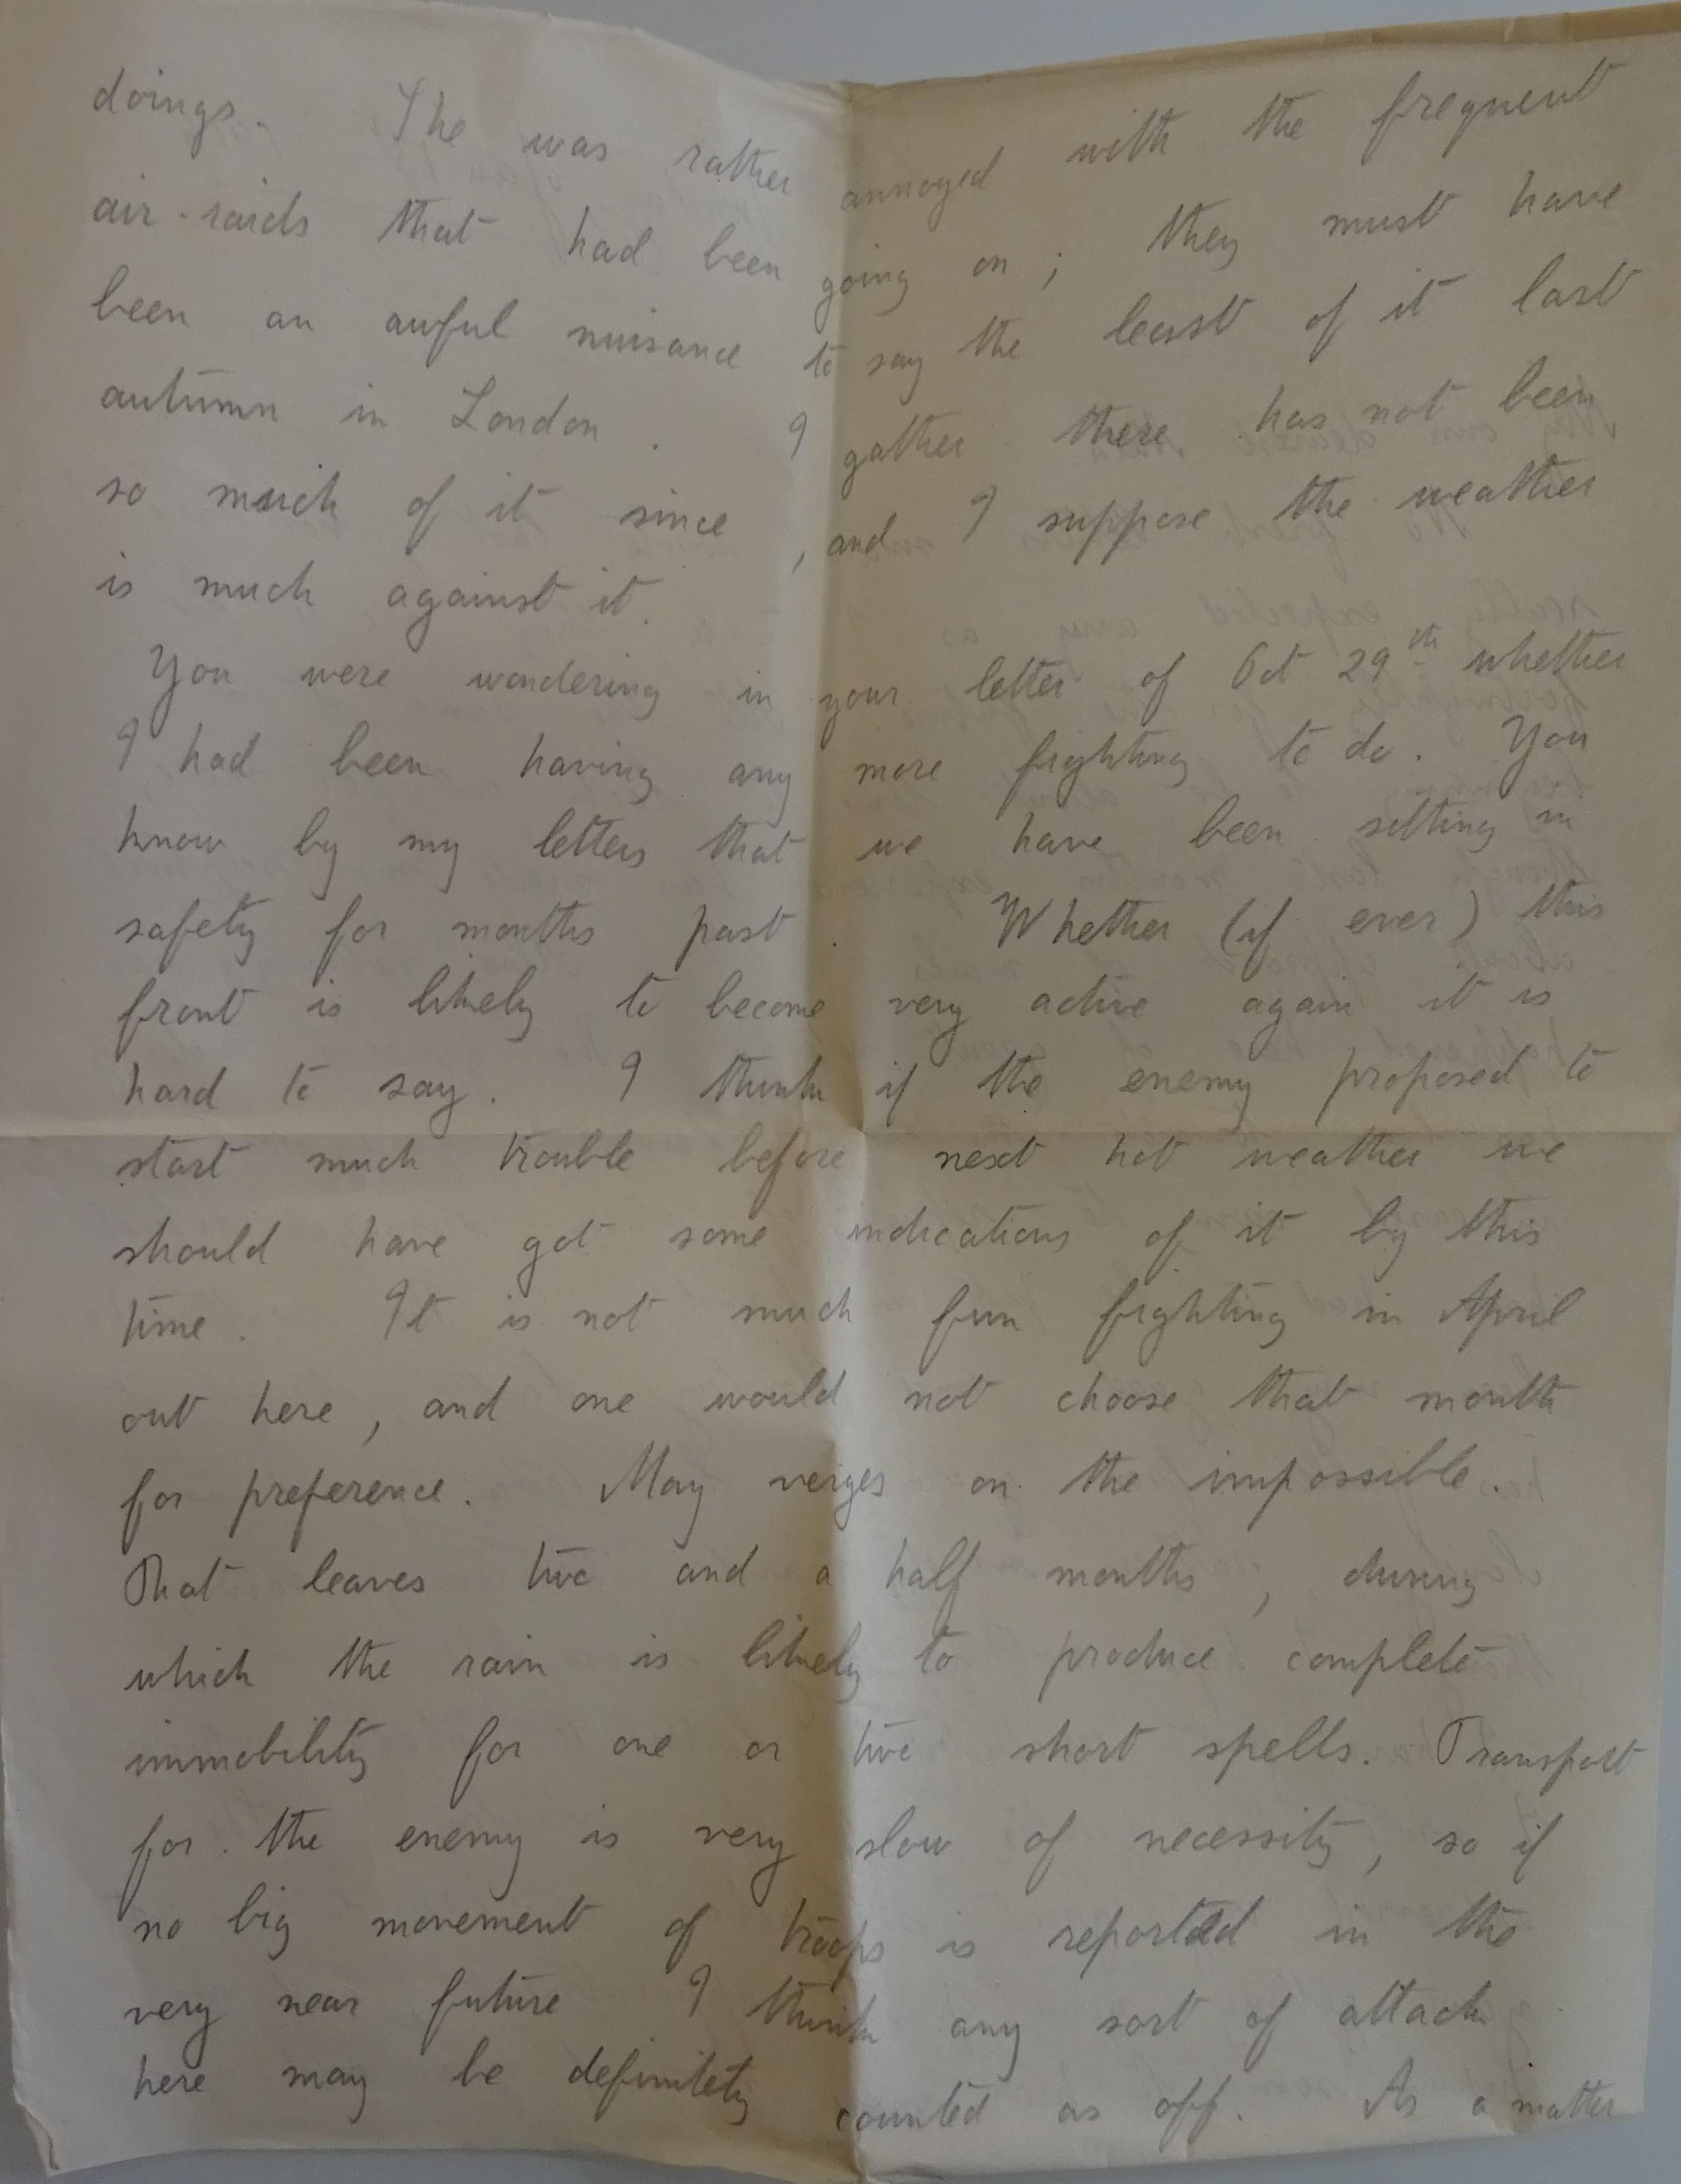 doings. She was rather annoyed with the frequent
air-raids that had been going on; they must have
been an awful nuisance to say the least of it last
autumn in London. I gather there has not been
so much of it since, and I suppose the weather
is much against it.
You were wondering in your letter of Oct 29th whether
I had been having any more fighting to do. You
know by my letters that we have been sitting in
safety for months past. Whether (if ever) this
front is likely to become very active again it is
hard to say. I think if the enemy proposed to
start much trouble before next hot weather we
should have got some indications of it by this
time. It is not much fun fighting in April
out here, and one would not choose that month
for preference. May verges on the impossible.
That leaves two and a half months, during
which the rain is likely to produce complete
immobility for one or two short spells. Transport
for the enemy is very slow of necessity, so if
no big movement of troops is reported in the
very near future I think any sort of attack
here may be definitely counted as off. As a matter